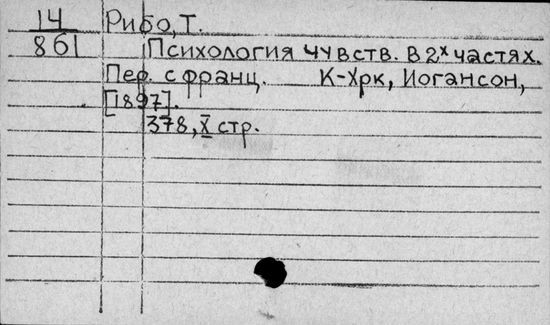 14 Рибо, Т.
861 Психология чувств. В 2х частях.
Пер. с франц. К-Хрк, Иогансон,
[1897].
378, X стр.